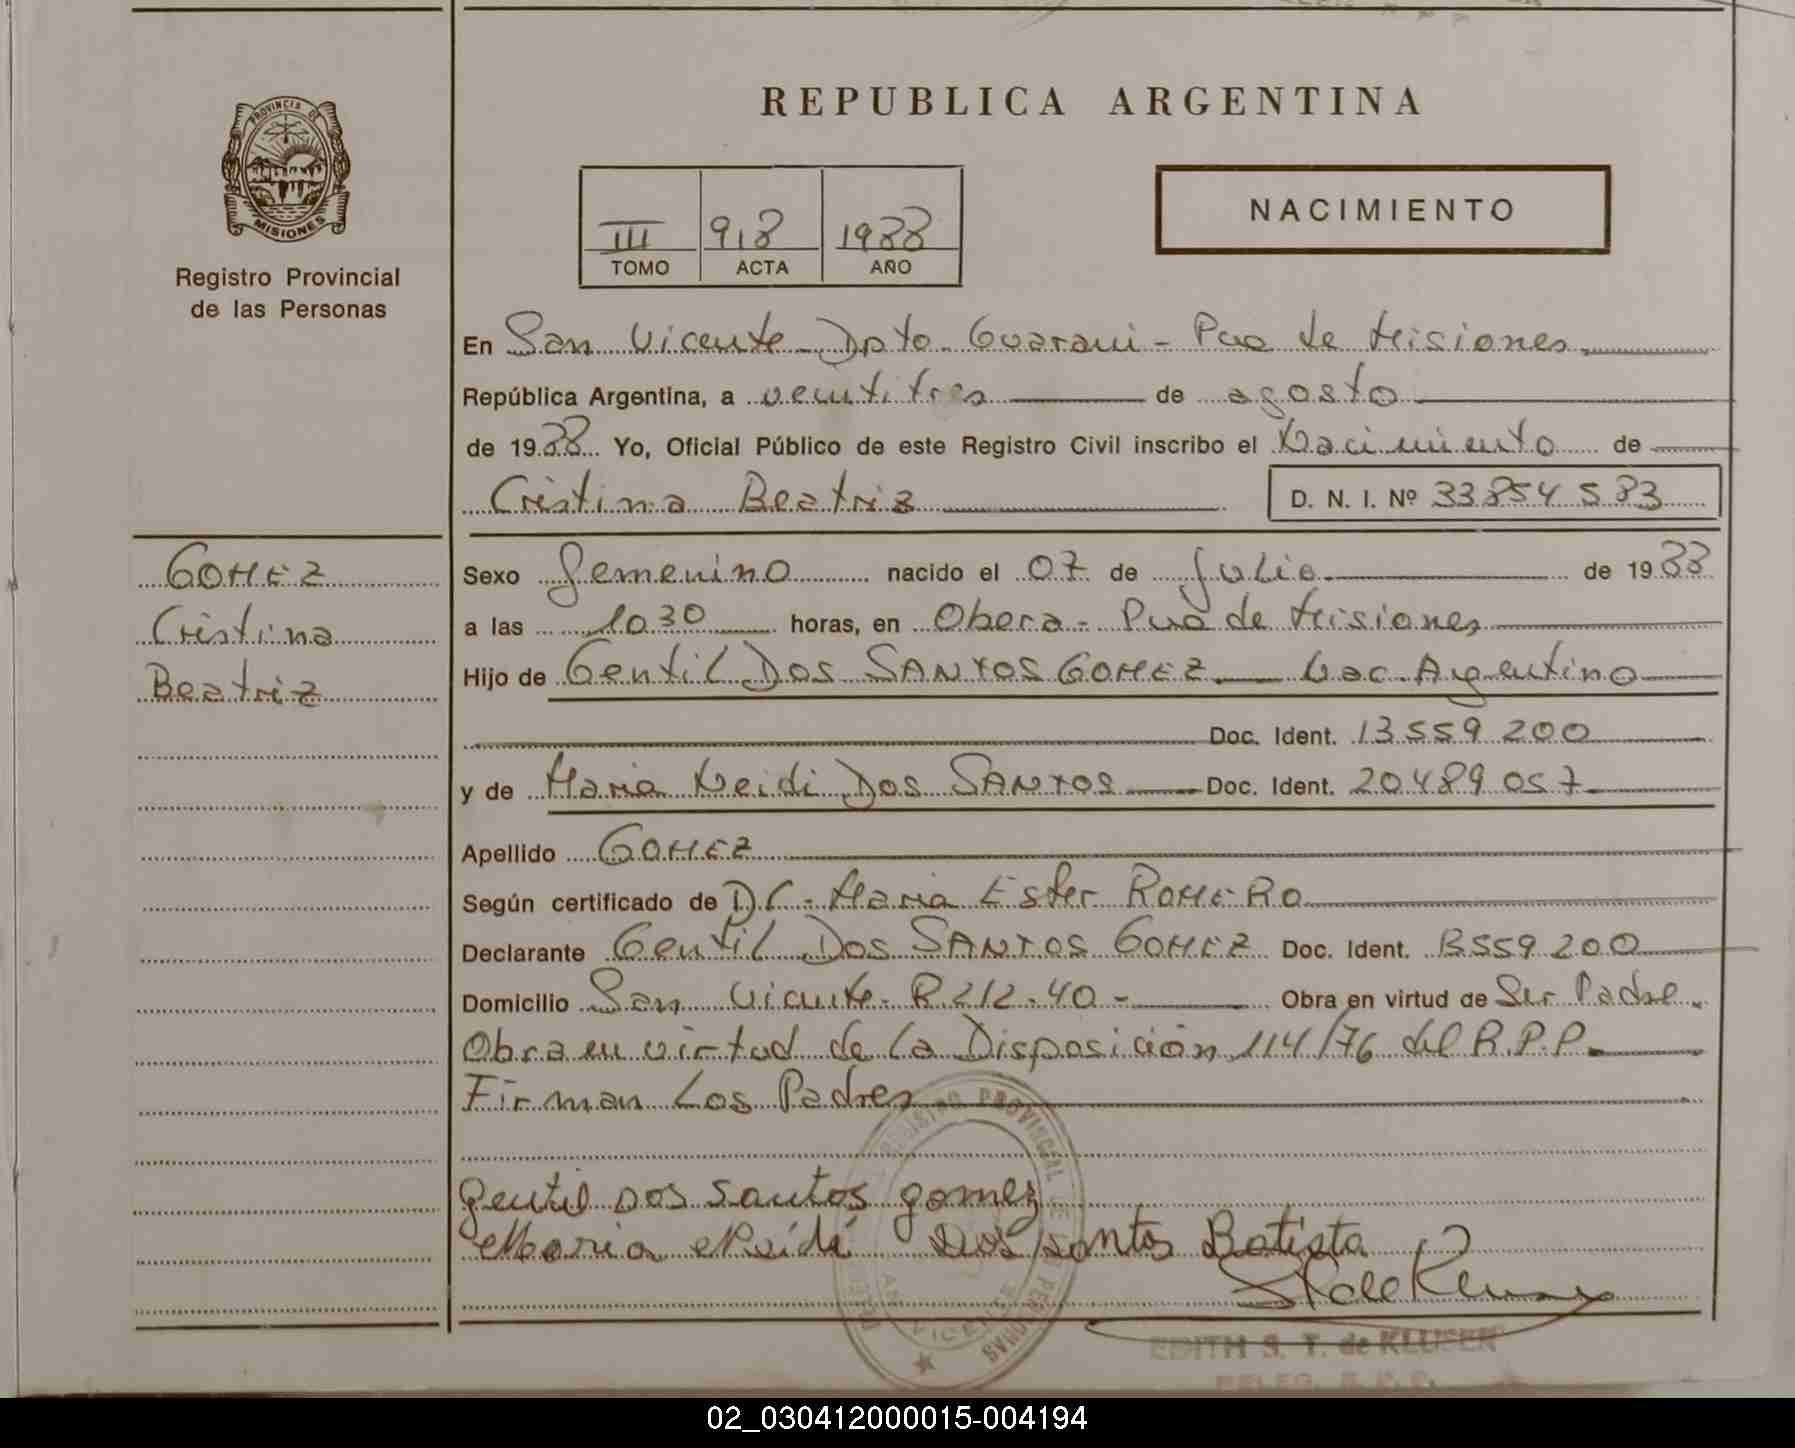 REPUBLICA ARGENTINA
PROVINCIA DE
MISIONES
Registro Provincial
de las Personas
NACIMIENTO
III 918 1988
TOMO ACTA AÑO
En San Vicente - Dpto Guarani - Pva de Misiones.
República Argentina, a veintitres de agosto
de 1988 Yo, Oficial Público de este Registro Civil inscribo el Nacimiento de
Cristina Beatriz D. N. I. Nº 33854583
GOMEZ
Cristina
Beatriz
Sexo femenino nacido el 07 de Julio de 1988
a las 1030 horas, en Obera - Pva de Misiones
Hijo de Gentil Dos SANTOS GOMEZ Nac. Argentino
Doc. Ident. 13559200
y de Maria Neidi Dos SANTOS Doc. Ident. 20489057
Apellido GOMEZ
Según certificado de Dr. Maria Ester ROMERO
Declarante Gentil Dos SANTOS GOMEZ Doc. Ident. 13559200
Domicilio San Vicente - B 212-40 - Obra en virtud de Ser Padre.
Obra en virtud de la Disposición 114/76 del R.P.P.
Firman Los Padres
REGISTRO PROVINCIAL DE LAS PERSONAS
SAN VICENTE
gentil dos santos gomez
Maria Neidi Dos santos Batista
EDITH S. T. de KLUSEN
DELEG. R. P. P.
02_030412000015-004194